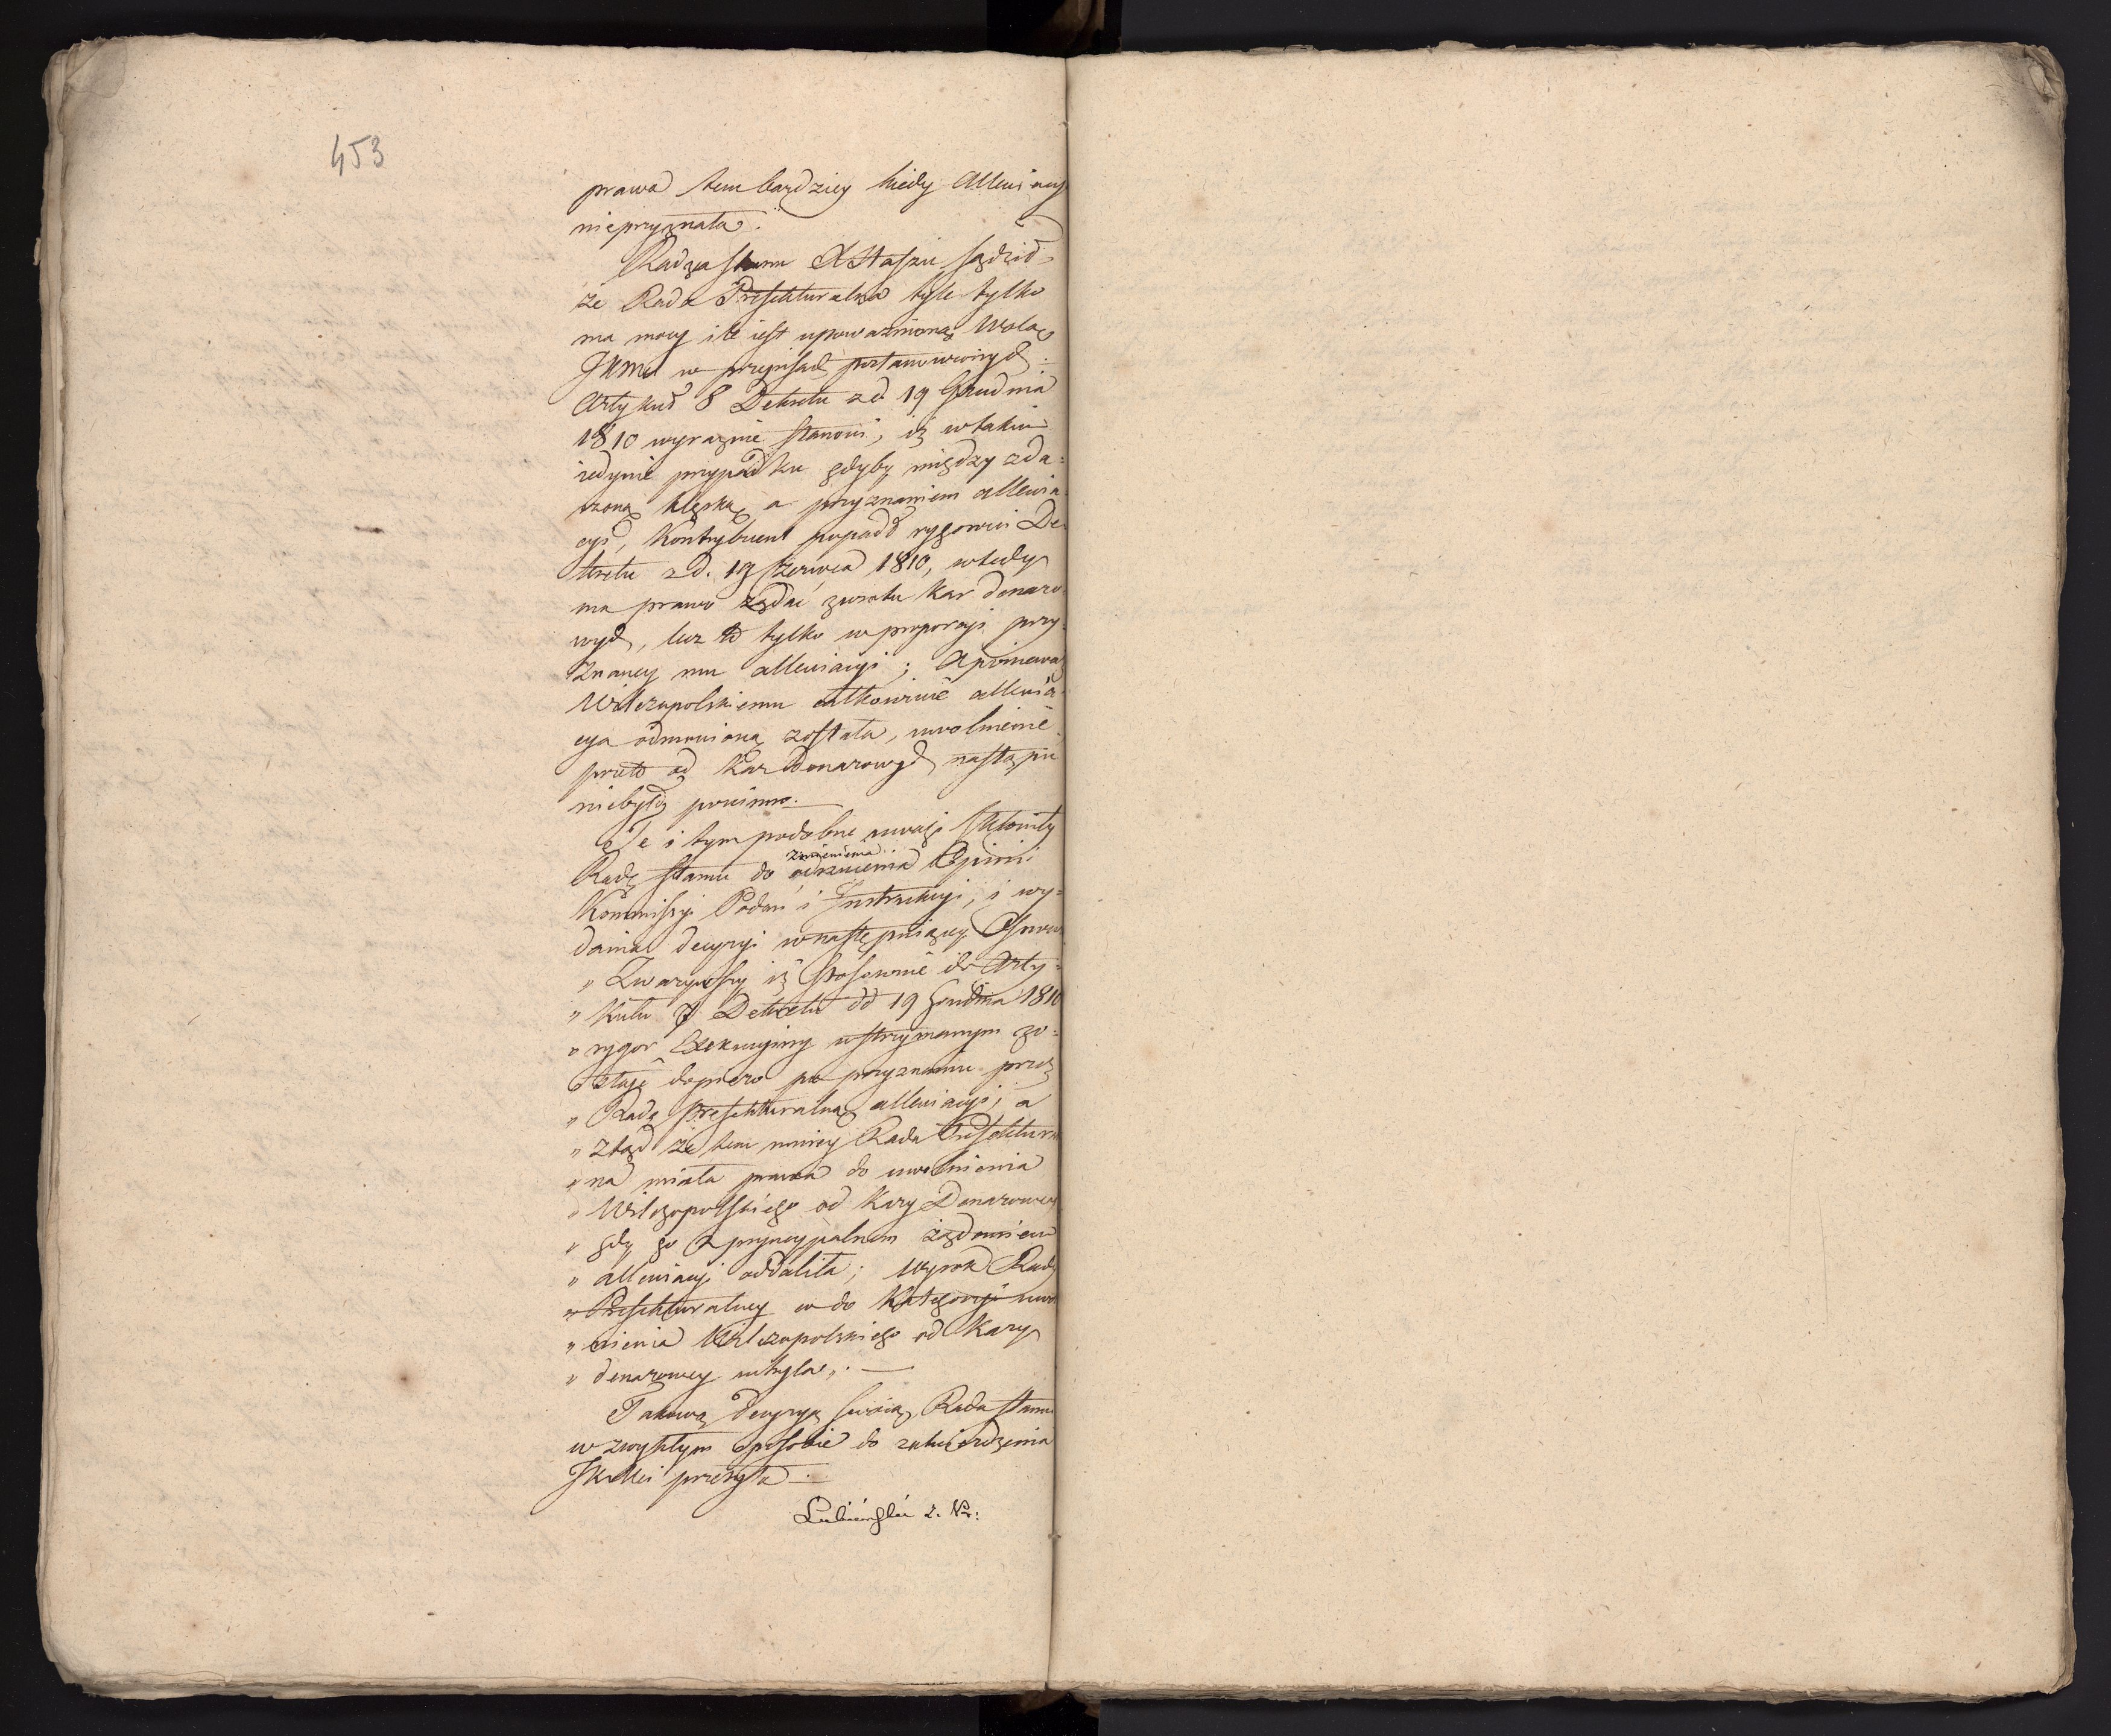 453
prawa tem bardziey kiedy Allewiacyi
nieprzyznała.
Radzca Stanu X Staszic sądził
że Rada Prefekturalna tyle tylko
ma mocy ile iest upoważnioną Wolą
JKMci w przepisach postanowionych.
Artykuł 8 Dekretu z d 19 Grudnia
1810 wyraznie stanowi, iż w takim
iedynie przypadku gdyby między zda=
rzoną klęską a przyznaniem allewia
cyi, Kontrybuent popadł rygorowi De
kretu z d. 19 Czerwca 1810, wtedy
ma prawo żądać zwrotu kar denaro
wych, lecz to tylko w proporcyi przy=
znaney mu allewiacyi; A ponieważ
Wilczopolskiemu całkowicie allewia
cya odmowioną została, uwolnienie
przeto od kar denarowych nastąpić
niebyło powinno.
Te i tym podobne uwagi skłoniły
Radę Stanu do odrzucenia Opinii
zmienienia
Kommissyi Podań i Instrukcyi, i wy=
dania decyzyi w następuiącey Osnowie
" Zważywszy iż stosownie do Arty=
" kułu 7 Dekretu dd 19 Grudnia 1810
" rygor Exekucyiny wstrzymanym zo=
" staje dopiero po przyznaniu przez
" Radę Prefekturalną allewiacyi; a
" ztąd że tem mniey Rada Prefektural
" na miała prawa do uwolnienia
" Wilczopolskiego od kary Denarowey
" gdy go z pryncypalnem żądaniem
" allewiacyi oddaliła; Wyrok Rady
" Prefekturalney co do Kategoryi uwol
" nienia Wilczopolskiego od kary
" denarowey uchyla".
Takową decyzyą swoią Rada Stanu
w zwykłym sposobie do zatwierdzenia
JKMci przesyła.